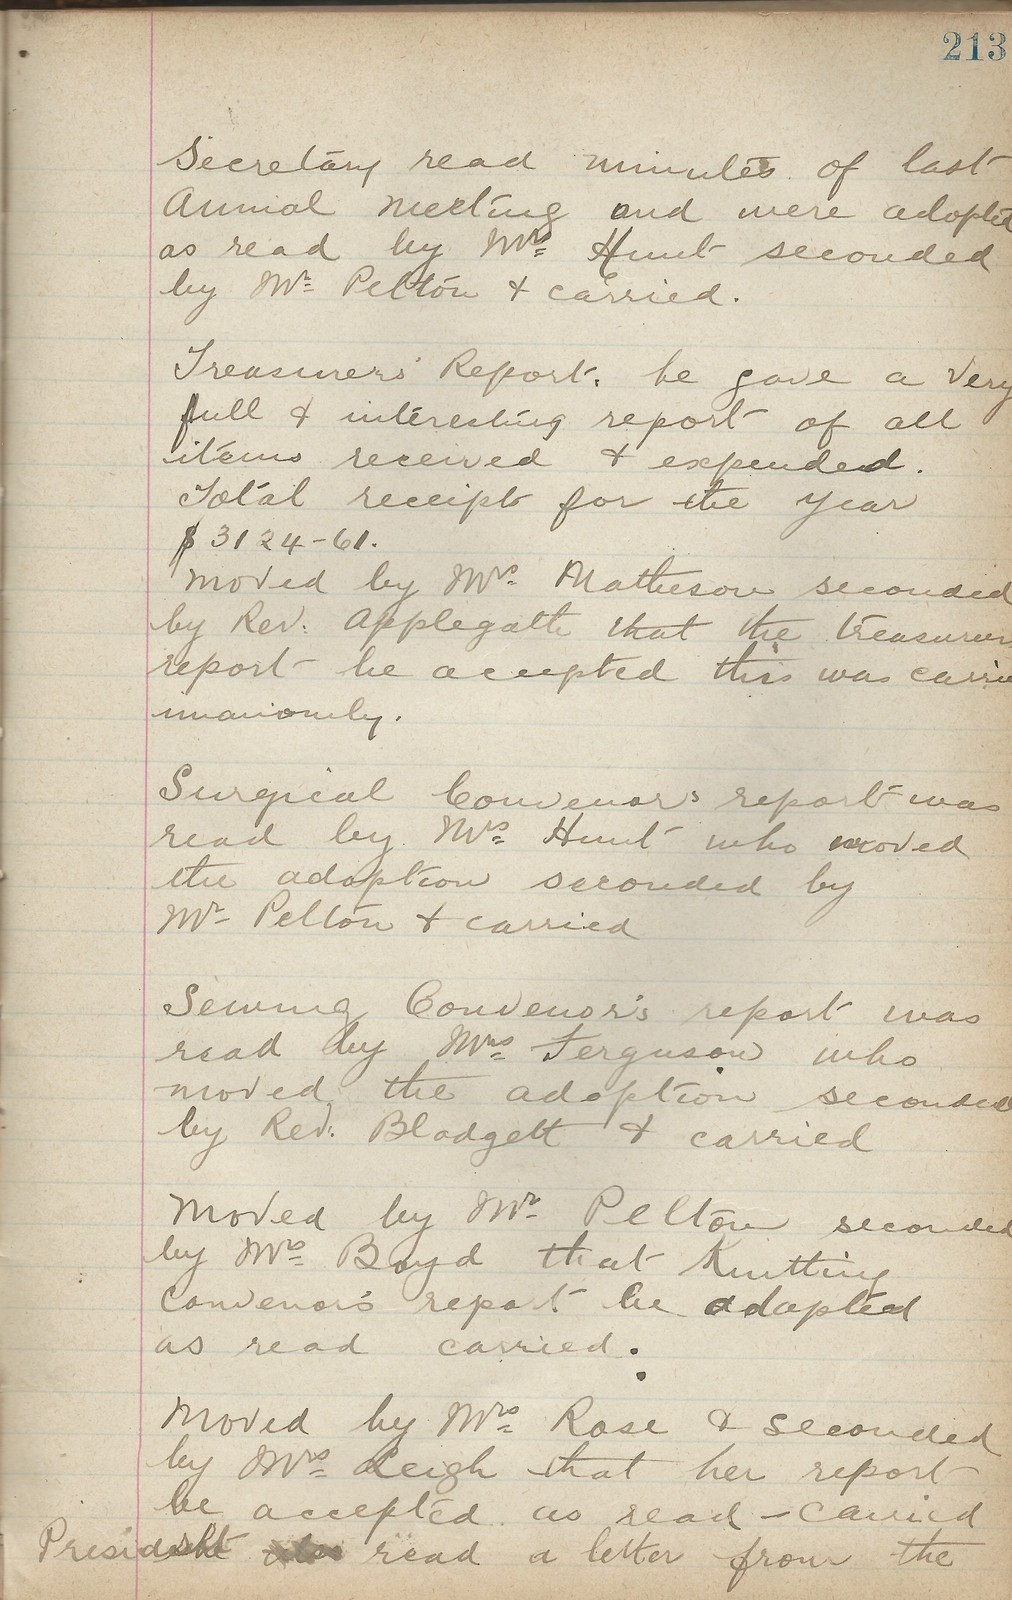 213
Secretary read minutes of last
Annual meeting and were adopted
as read by Mrs Hunt seconded
by Mr Pelton & carried.
Treasurers' Report. he gave a very
full & interesting report of all
items received & expended.
Total receipt for the year
$3124-61.
Moved by Mrs Matheson seconded
by Rev. Applegath that the treasurers
report be accepted this was carrie
unaniomly.
Surgical Convenor's report was
read by Mrs Hunt who moved
the adoption seconded by
Mr Pelton & carried
Sewing Convenor's report was
read by Mrs Ferguson who
moved the adoption seconded
by Rev. Blodgett & carried
Moved by Mr Pelton seconded
by Mrs Boyd that Knitting
Convenor's report be adopted
as read carried.
Moved by Mrs Rose & seconded
by Mrs Leigh that her report
be accepted as read - carried
President read a letter from the